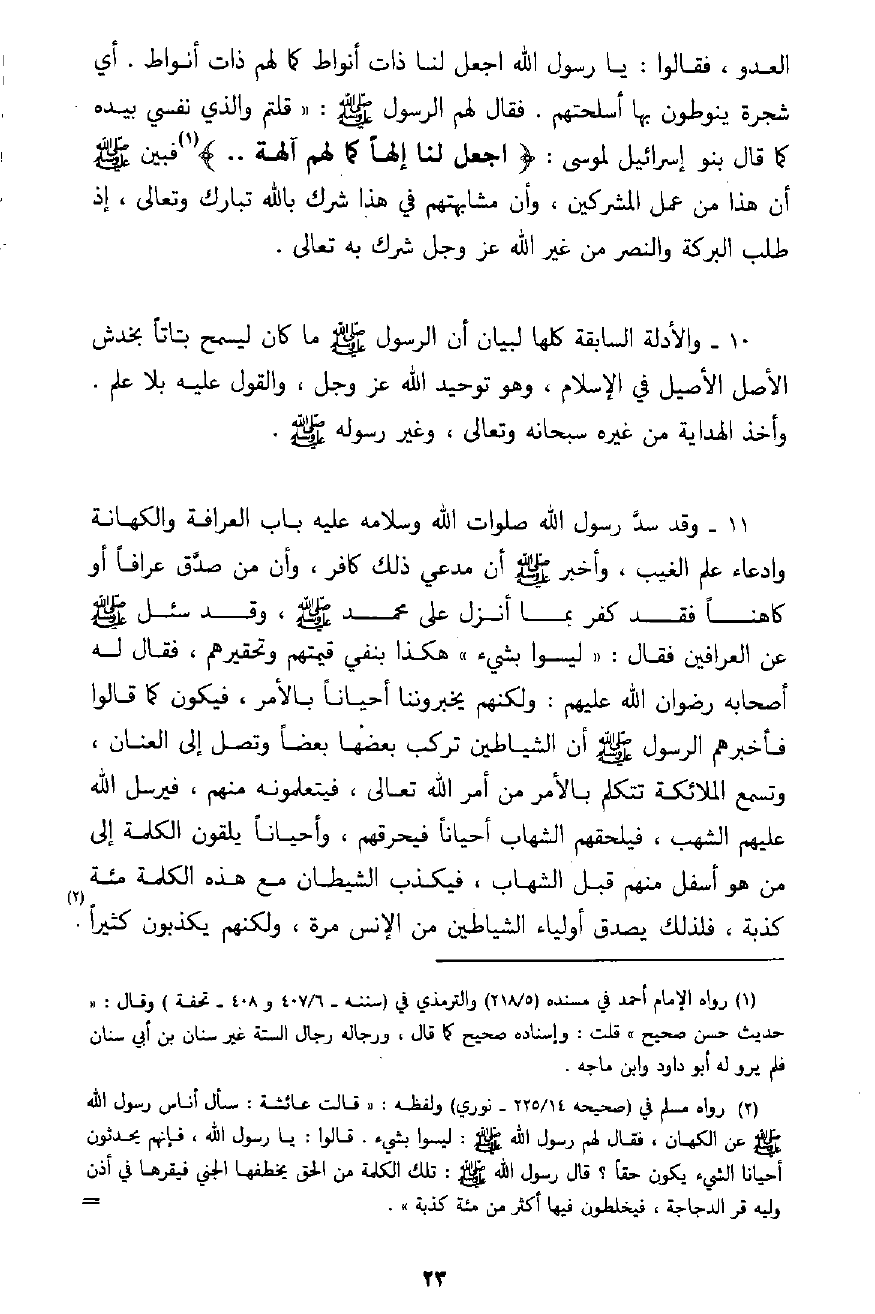 العدو ، فقالوا : يا رسول الله اجعل لنا ذات أنواط كما لهم ذات أنواط . أي
شجرة ينوطون بها أسلحتهم . فقال لهم الرسول ﷺ : « قلتم والذي نفسي بيده
كما قال بنو إسرائيل لموسى : ﴿ اجعل لنا إلهاً كما لهم آلهة .. ﴾(١) فبين ﷺ
أن هذا من عمل المشركين ، وأن مشابهتهم في هذا شرك بالله تبارك وتعالى ، إذ
طلب البركة والنصر من غير الله عز وجل شرك به تعالى .
١٠ ـ والأدلة السابقة كلها لبيان أن الرسول ﷺ ما كان ليسمح بتاتاً بخدش
الأصل الأصيل في الإسلام ، وهو توحيد الله عز وجل ، والقول عليه بلا علم .
وأخذ الهداية من غيره سبحانه وتعالى ، وغير رسوله ﷺ .
١١ ـ وقد سدَّ رسول الله صلوات الله وسلامه عليه باب العرافة والكهانة
وادعاء علم الغيب ، وأخبر ﷺ أن مدعي ذلك كافر ، وأن من صدَّق عرافاً أو
كاهناً فقد كفر بما أنزل على محمد ﷺ ، وقد سئل ﷺ
عن العرافين فقال : « ليسوا بشيء » هكذا بنفي قيمتهم وتحقيرهم ، فقال له
أصحابه رضوان الله عليهم : ولكنهم يخبروننا أحياناً بالأمر ، فيكون كما قالوا
فأخبرهم الرسول ﷺ أن الشياطين تركب بعضها بعضاً وتصل إلى العنان ،
وتسمع الملائكة تتكلم بالأمر من أمر الله تعالى ، فيتعلمونه منهم ، فيرسل الله
عليهم الشهب ، فيلحقهم الشهاب أحياناً فيحرقهم ، وأحياناً يلقون الكلمة إلى
من هو أسفل منهم قبل الشهاب ، فيكذب الشيطان مع هذه الكلمة مئة
كذبة ، فلذلك يصدق أولياء الشياطين من الإنس مرة ، ولكنهم يكذبون كثيراً(٢) .
(١) رواه الإمام أحمد في مسنده (٢١٨/٥) والترمذي في (سننه ـ ٤٠٧/٦ و ٤٠٨ ـ تحفة ) وقال : «
حديث حسن صحيح » قلت : وإسناده صحيح كما قال ، ورجاله رجال الستة غير سنان بن أبي سنان
فلم يرو له أبو داود وابن ماجه .
(٢) رواه مسلم في (صحيحه ٢٢٥/١٤ ـ نوري) ولفظه : « قالت عائشة : سأل أناس رسول الله
ﷺ عن الكهان ، فقال لهم رسول الله ﷺ : ليسوا بشيء . قالوا : يا رسول الله ، فإنهم يحدثون
أحيانا الشيء يكون حقاً ؟ قال رسول الله ﷺ : تلك الكلمة من الحق يخطفها الجني فيقرها في أذن
وليه قر الدجاجة ، فيخلطون فيها أكثر من مئة كذبة » .
=
٢٣